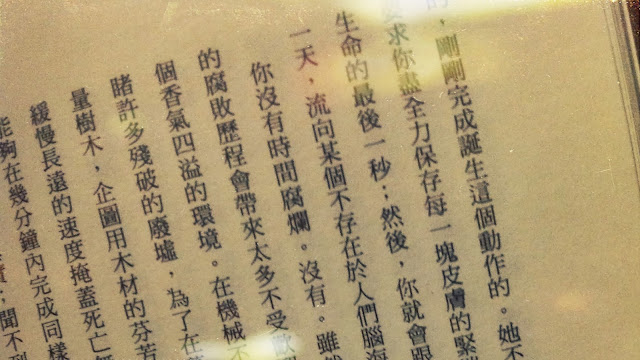 的，剛剛完成誕生這個動作的。她不
要求你盡全力保存每一塊皮膚的緊
生命的最後一秒；然後，你就會跟
一天，流向某個不存在於人們腦海
你沒有時間腐爛。沒有。雖然
的腐敗歷程會帶來太多不受歡
個香氣四溢的環境。在機械不
睹許多殘破的廢墟，為了在
量樹木，企圖用木材的芬芳
緩慢長遠的速度掩蓋死亡無
能夠在幾分鐘內完成同樣
；聞不到